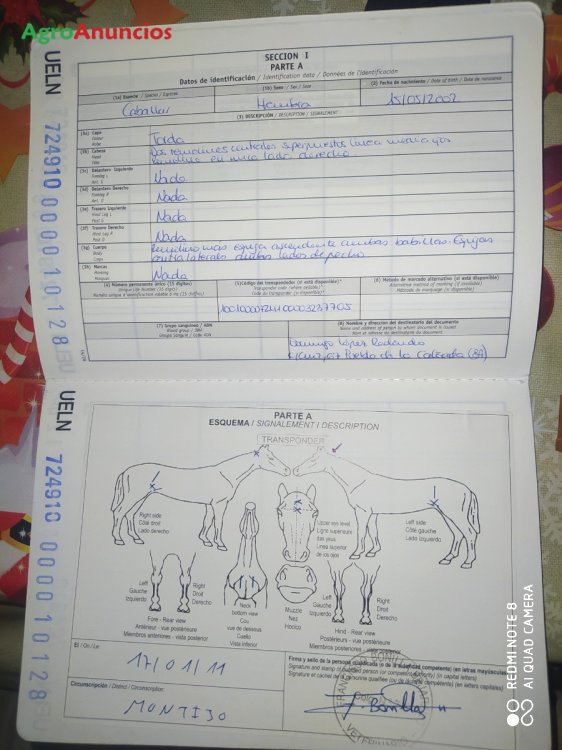 AgroAnuncios
UELN 724910 0000 10128
SECCION I
PARTE A
Datos de identificación / Identification data / Données de l'identification
(1a) Especie / Species / Espèces
(1b) Sexo / Sex / Sexe
(2) Fecha de nacimiento / Date of birth / Date de naissance
Caballar
Hembra
15/05/2002
(3) DESCRIPCIÓN / DESCRIPTION / SIGNALEMENT
(3a) Capa
Colour
Robe
Torda
(3b) Cabeza
Head
Tête
Dos remolinos centrales superpuestos línea media ojos
Remolino en nuca lado derecho.
(3c) Delantero Izquierdo
Foreleg L
Ant. G
Nada
(3d) Delantero Derecho
Foreleg R
Ant. D
Nada
(3e) Trasero Izquierdo
Hind Leg L
Post G
Nada
(3f) Trasero Derecho
Hind Leg R
Post D
Nada
(3g) Cuerpo
Body
Corps
Remolino más espiga ascendente ambas babillas. Espigas
ambos lados de pecho.
(3h) Marcas
Marking
Marques
Nada
(4) Número permanente único (15 dígitos)
Unique Life Number (15 digits)
Numéro unique d'identification valable à vie (15 chiffres)
(5) Código del transpondedor (si está disponible)*
Transponder code (where available)*
Code du transpondeur (si disponible)*
(6) Método de marcado alternativo (si está disponible)
Alternative method of marking (if available)
Méthode de marquage (si disponible)
(7) Grupo sanguíneo / ADN
Blood group / DNA
Groupe sanguin / Code ADN
(8) Nombre y dirección del destinatario del documento
Name and address of person to whom document is issued
Nom et adresse du destinataire du document
Domingo López Redondo
Puebla de la Calzada (BA)
UELN 724910 0000 10128
PARTE A
ESQUEMA / SIGNALEMENT / DESCRIPTION
TRANSPONDER
Right side
Côté droit
Lado derecho
Upper eye level
Ligne supérieure
des yeux
Linea superior
de los ojos
Left side
Côté gauche
Lado izquierdo
Left
Gauche
Izquierdo
Right
Droit
Derecho
Neck
bottom view
Cou
vue de dessous
Cuello
Vista inferior
Muzzle
Nez
Hocico
Left
Gauche
Izquierdo
Right
Droit
Derecho
Fore - Rear view
Antérieur - vue postérieure
Miembros anteriores - vista posterior
Hind - Rear view
Postérieurs - vue postérieure
Miembros posteriores - vista posterior
El / On / Le:
17/01/11
Circunscripción / District / Circonscription:
MONTIJO
Firma y sello de la persona cualificada (o de la autoridad competente) (en letras mayúsculas)
Signature and stamp of qualified person (or competent authority) (in capital letters)
Signature et cachet de la personne qualifiée (ou de l'autorité compétente) (en lettres capitales)
REDMI NOTE 8
AI QUAD CAMERA